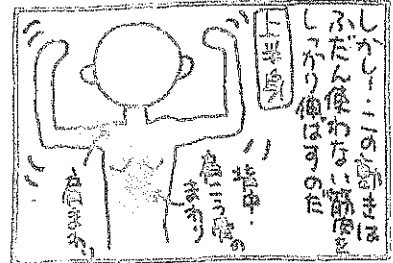 しかし!この動きは
ふだん使わない筋肉を
しっかり伸ばすのだ
上半身
背中・
肩こう骨の
まわり
肩まわり